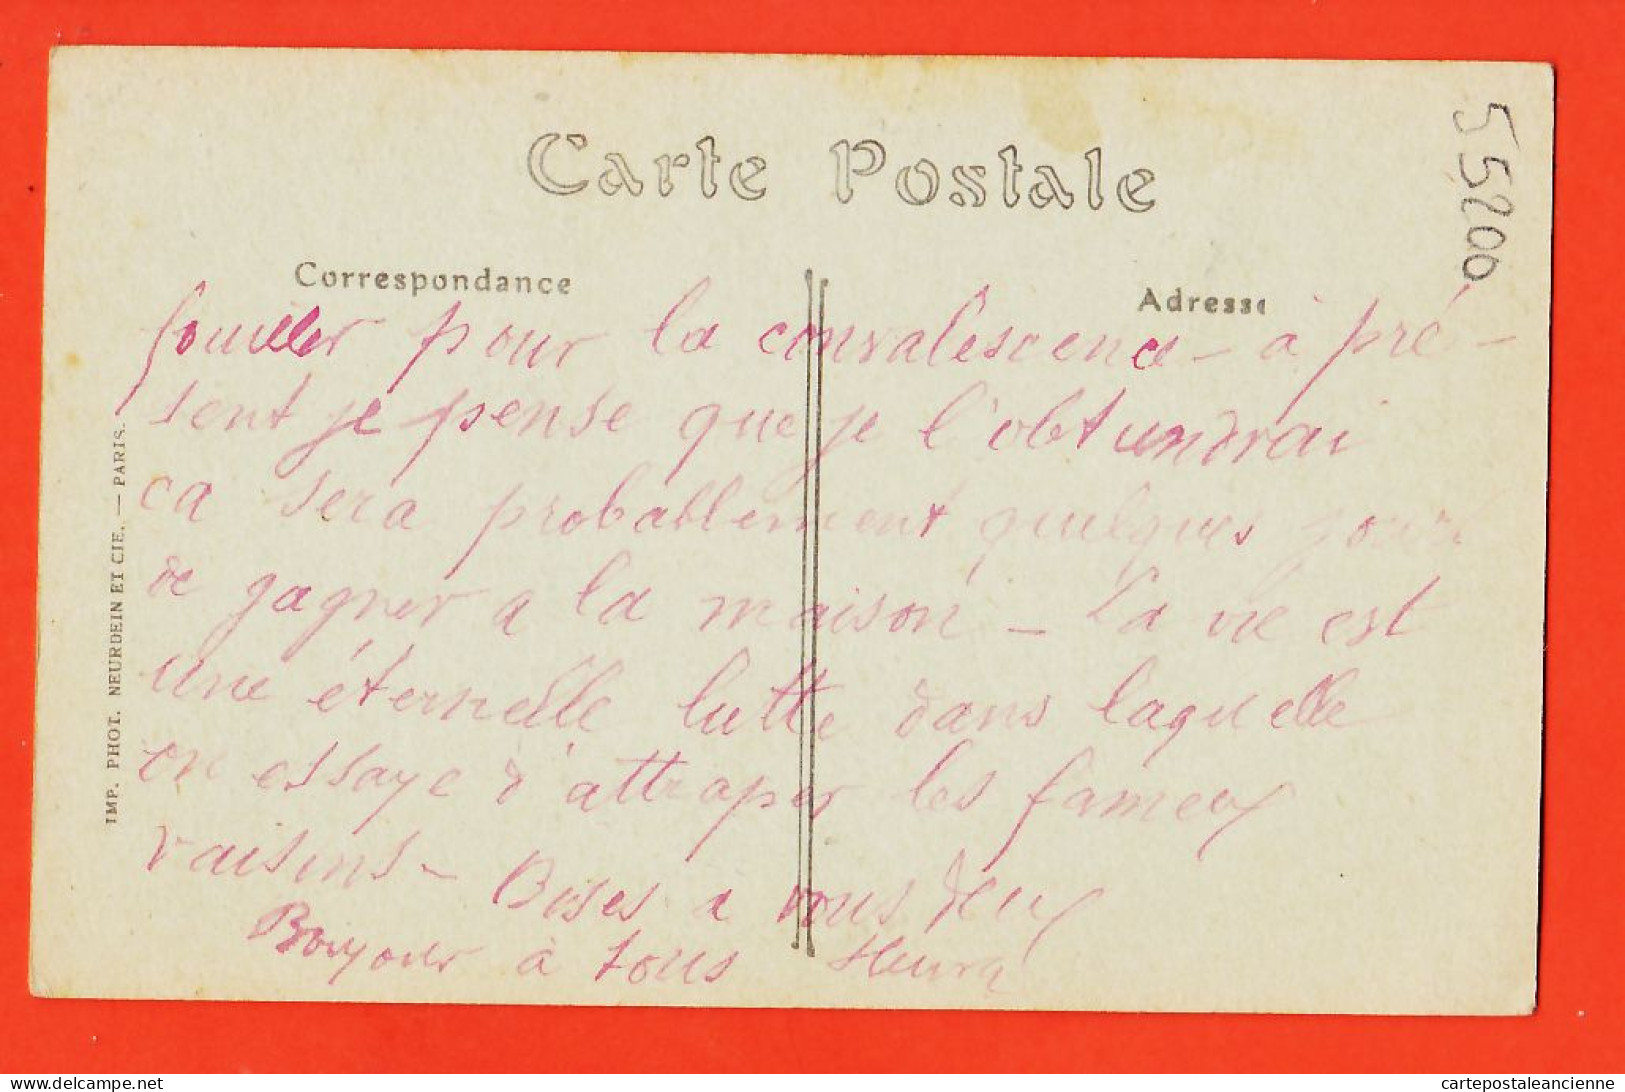 Carte Postale
55200
Correspondance
Adresse
fouiller pour la convalescence - à pré-
sent je pense que je l'obtiendrai
ca sera probablement quelques jours
de gagner a la maison - La vie est
une éternelle lutte dans laquelle
on essaye d'attraper les fameux
raisins - Bises a vous deux
Bonjour à tous
IMP. PHOT. NEURDEIN ET CIE. — PARIS.
cartepostaleancienne